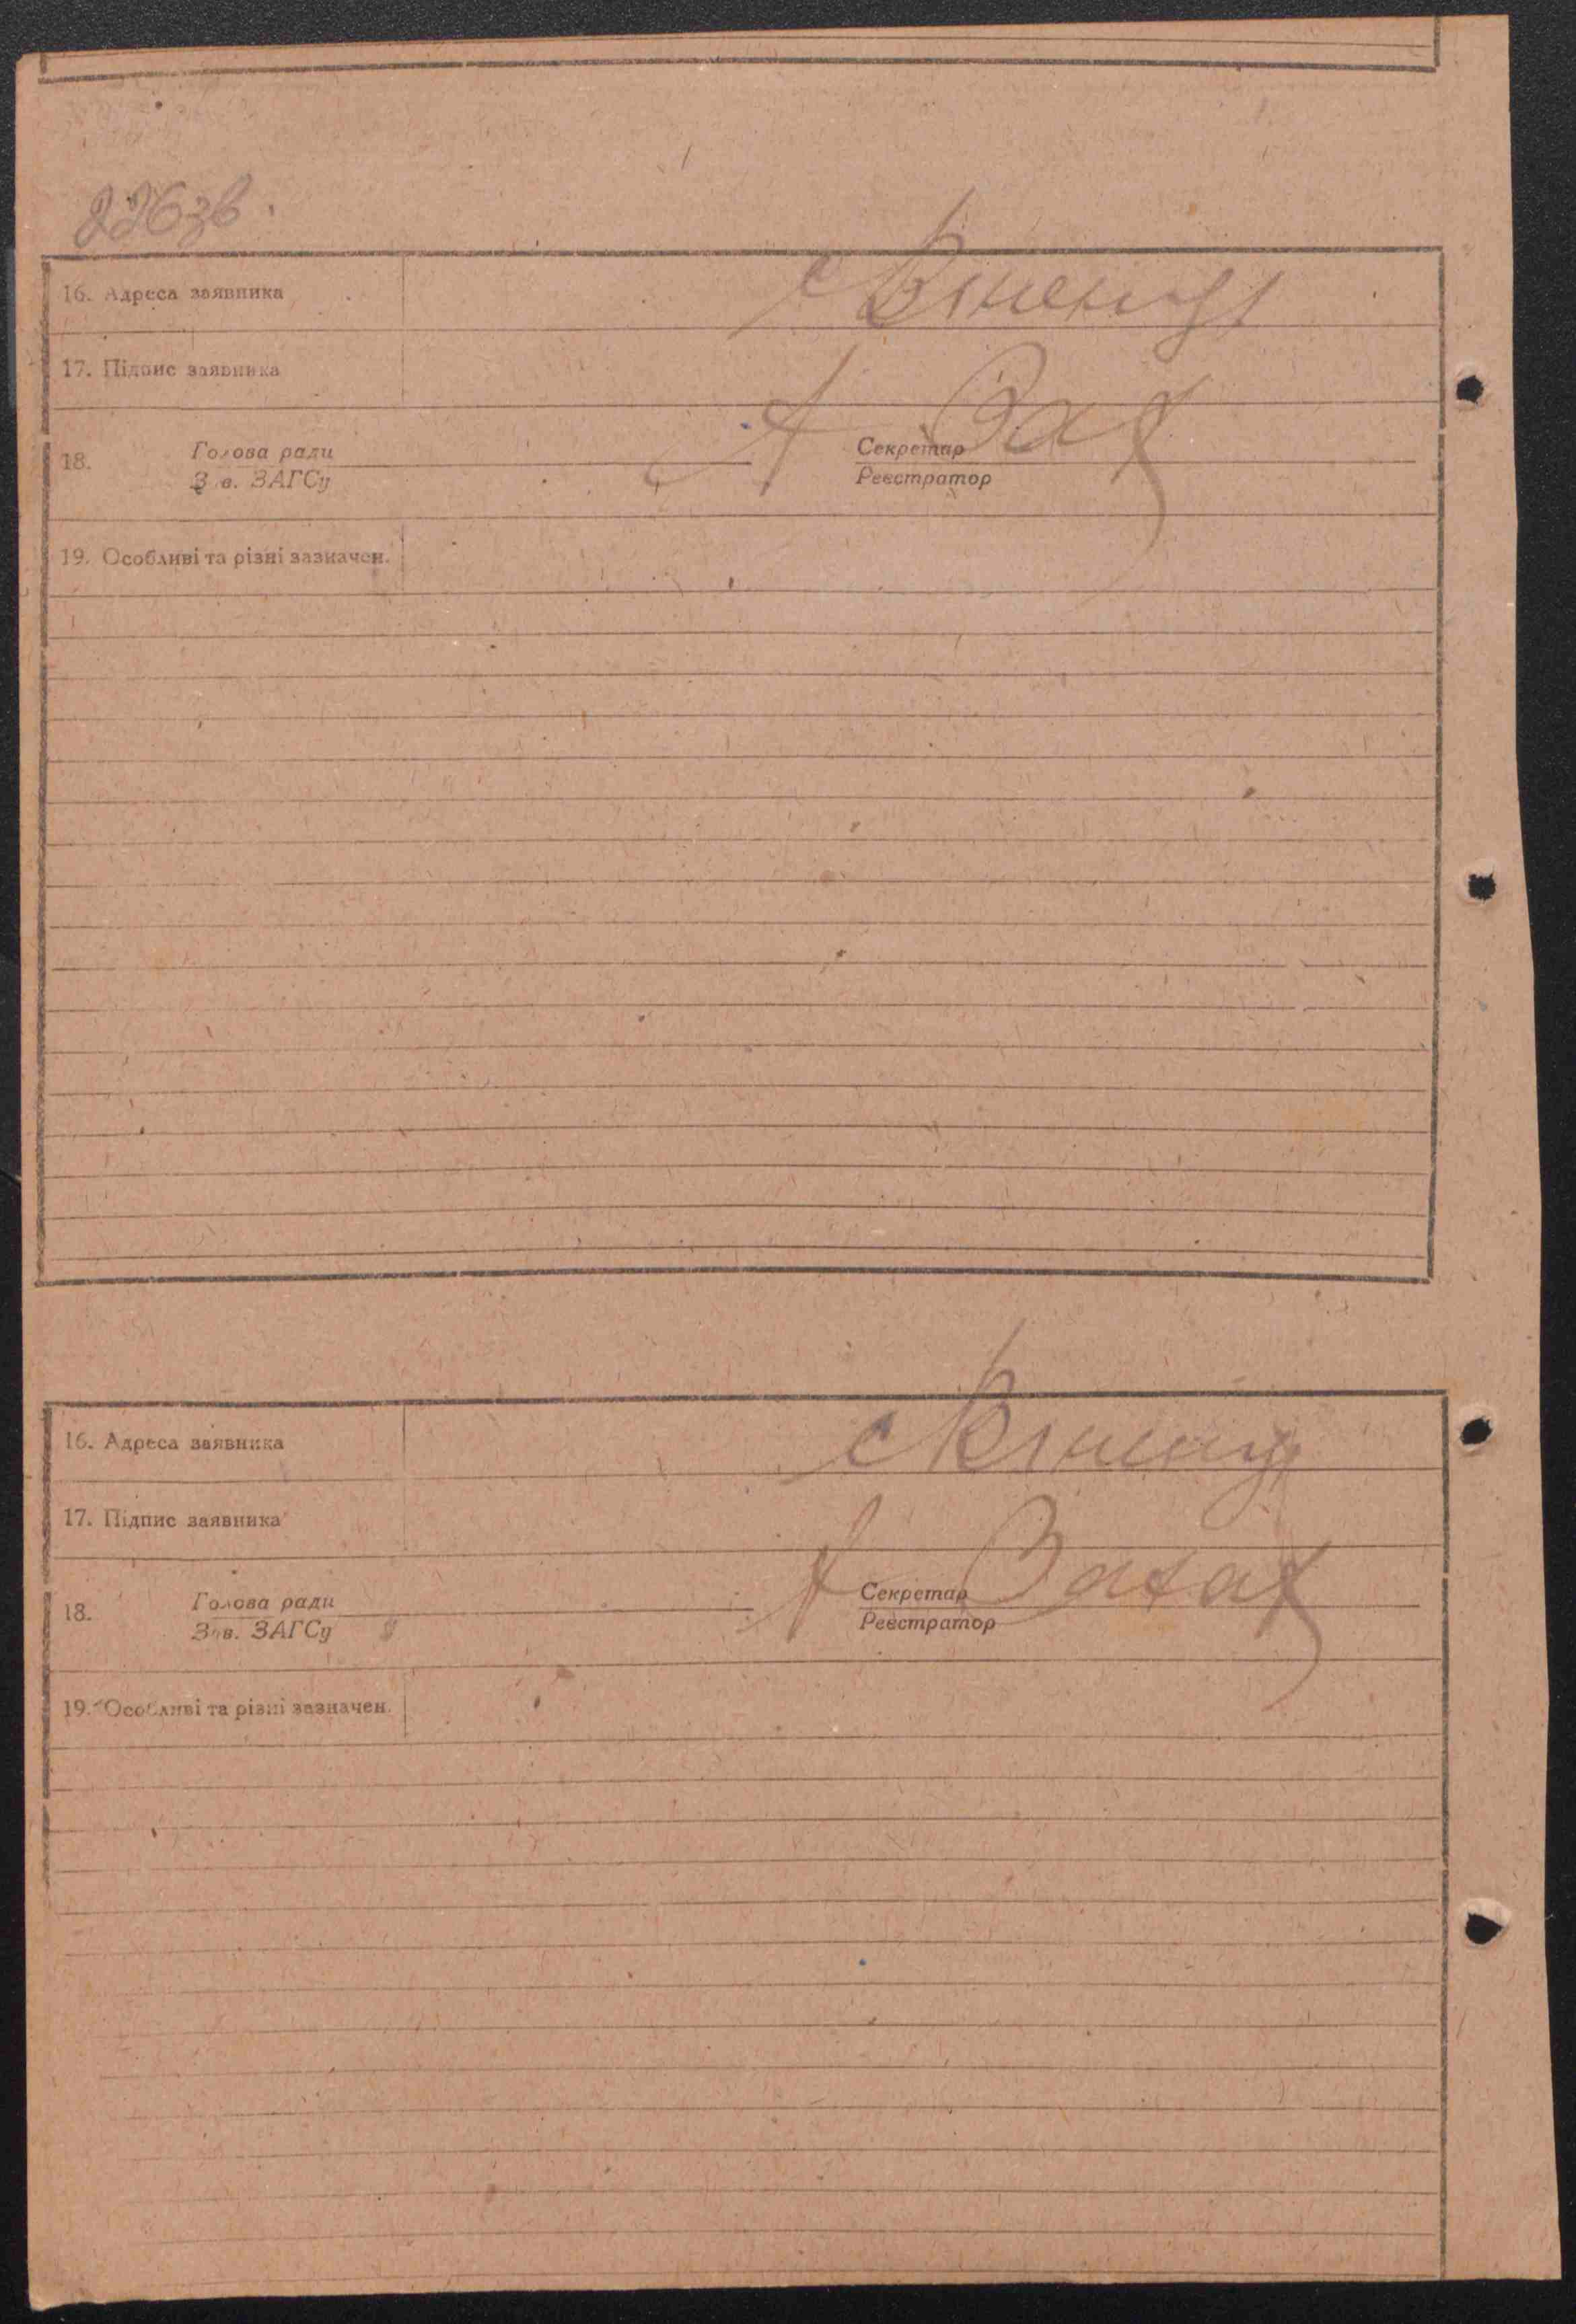 226зв.
16. Адреса заявника
17. Підпис заявника
18. Голова ради Секретар
Зав. ЗАГСу Реєстратор
19. Особливі та різні зазначен.
16. Адреса заявника с
17. Підпис заявника
18. Голова ради Секретар
Зав. ЗАГСу Реєстратор
19. Особливі та різні зазначен.